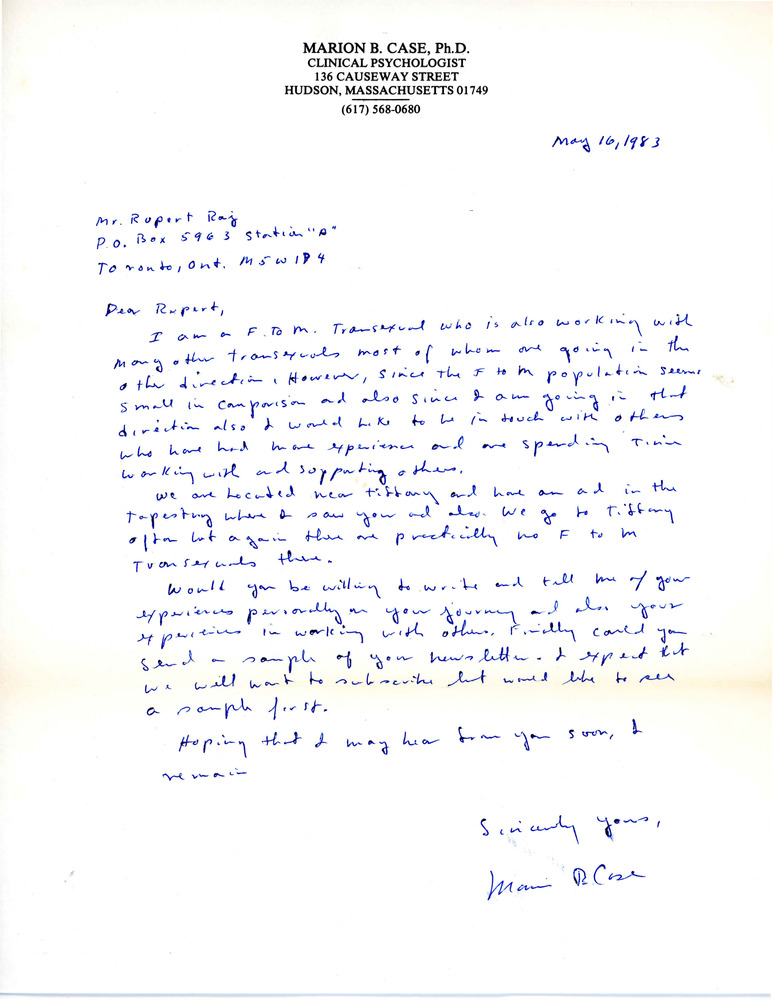 MARION B. CASE, Ph.D.
CLINICAL PSYCHOLOGIST
136 CAUSEWAY STREET
HUDSON, MASSACHUSETTS 01749
(617) 568-0680
May 16, 1983
Mr. Rupert Raj
P.O. Box 5963 Station "A"
Toronto, Ont. M5W 1P4
Dear Rupert,
I am a F. To M. Transexual who is also working with
many other transexuals most of whom are going in the
other direction. However, since the F to M population seems
small in comparison and also since I am going in that
direction also I would like to be in touch with others
who have had more experience and are spending time
working with and supporting others.
We are located near Tiffany and have an ad in the
Tapestry where I saw your ad also. We go to Tiffany
often but again there are practically no F to M
Transexuals there.
Would you be willing to write and tell me of your
experiences personally on your journey and also your
experiences in working with others. Finally could you
send a sample of your newsletter. I expect that
we will want to subscribe but would like to see
a sample first.
Hoping that I may hear from you soon, I
remain
Sincerely yours,
Marion B. Case